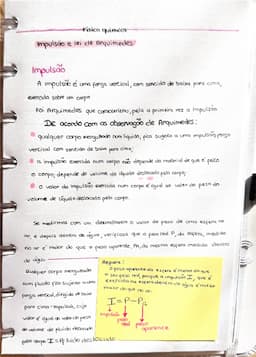 Físico química
Impulsão e lei de Arquimedes
Impulsão
A impulsão é uma força vertical, com sentido de baixo para cima,
exercida sobre um corpo
Foi Arquimedes que caracterizou, pela a primeira vez a impulsão
De acordo com as observação de Arquimedes:
qualquer corpo mergulhado num líquido, fica sujeito a uma impulsão, força
vertical com sentido de baixo para cima;
a impulsão exercida num corpo não depende do material de que é feito
o corpo, depende do volume de líquido deslocado pelo corpo;
o valor da impulsão exercida num corpo é igual ao valor do peso do
volume de líquido deslocado pelo corpo.
Se medirmos com um dinamómetro o valor do peso de uma esfera no
ar, e depois dentro de água, verificas que o peso real P, da esfera, medido
no ar é maior do que o peso aparente, Pa, da mesma esfera medida dentro
de água
Qualquer corpo mergulhado
num fluído fica sujeito a uma
força vertical, dirigida de baixo
para cima - impulsão, cujo
valor é igual ao valor do peso
do volume de fluído deslocado
pelo corpo I = P fluído deslocado
Repara:
O peso aparente da esfera é menor do que
o peso real, porque a impulsão I, que é
exercida na esfera dentro de água é maior
do que no ar
I = P - Pa
impulsão
peso
real
peso
aparente